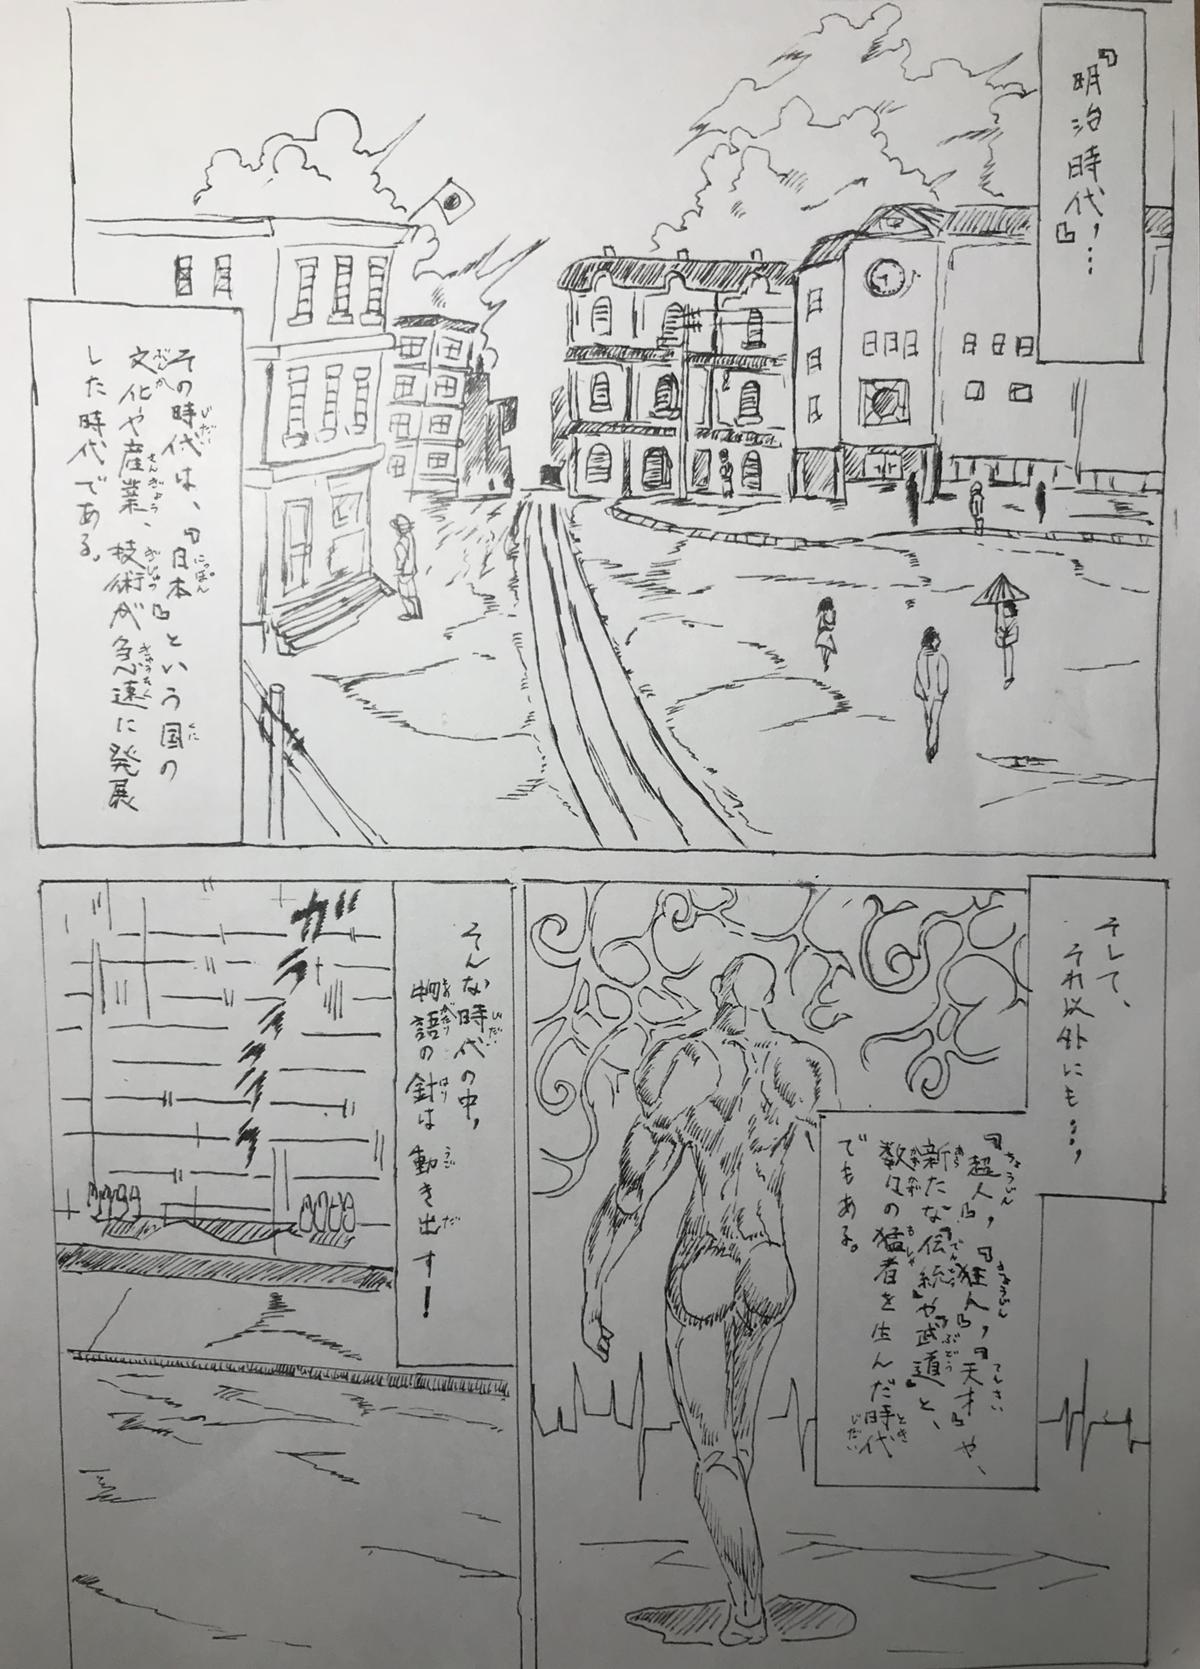 『明治時代,…』
その時代は、『日本』という国の
文化や産業、技術が急速に発展
した時代である。
そして、
それ以外にも…,
『超人』,『狂人』,『天才』や、
新たな『伝統』や『武道』と、
数々の猛者を生んだ時代
でもある。
そんな時代の中,
物語の針は動き出す!
ガラララララ